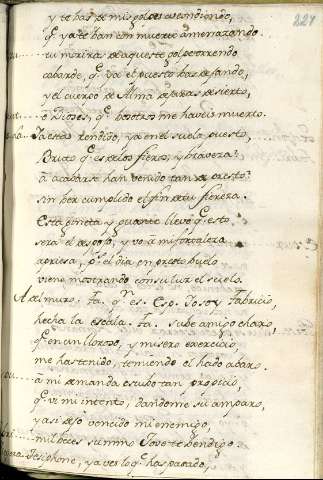 224
y te has de mis golpes escondiendo,
q̃ ya te han con muerte amenazando
tu morirás de aqueste golpe orrendo
cobarde, q̃ ya el puesto has dejando,
y el cuerpo de Alma dejarás desierto,
o Dioses, q̃ vosotros me haveis muerto.
Ja estás rendido, ya en el suelo puesto,
Bruto q̃ es de los fieros, y braveza?
a acabarse han venido tan de presto?
sin her cumplido el fin de tu fiereza.
Esta gineta y guante llevo q̃ esto
será el despojo, y vo a mi fortaleza
apriesa, q̃ el dia en presto buelo
viene mostrando con su luz el suelo.
A del muro. Fa. q.n es. Esp. Io soy Fabricio,
hecha la escala. Fa. sube amigo charo,
q̃ en un lloroso, y misero exercicio,
me has tenido, temiendo el hado abaro.
a mi demanda estubo tan propicio,
q̃ vi mi intento, dandome su amparo,
y asi dejo vencido mi enemigo,
mil beces sumino Jove te bendigo.
Tesiphone, ya ves lo q̃ has pasado,